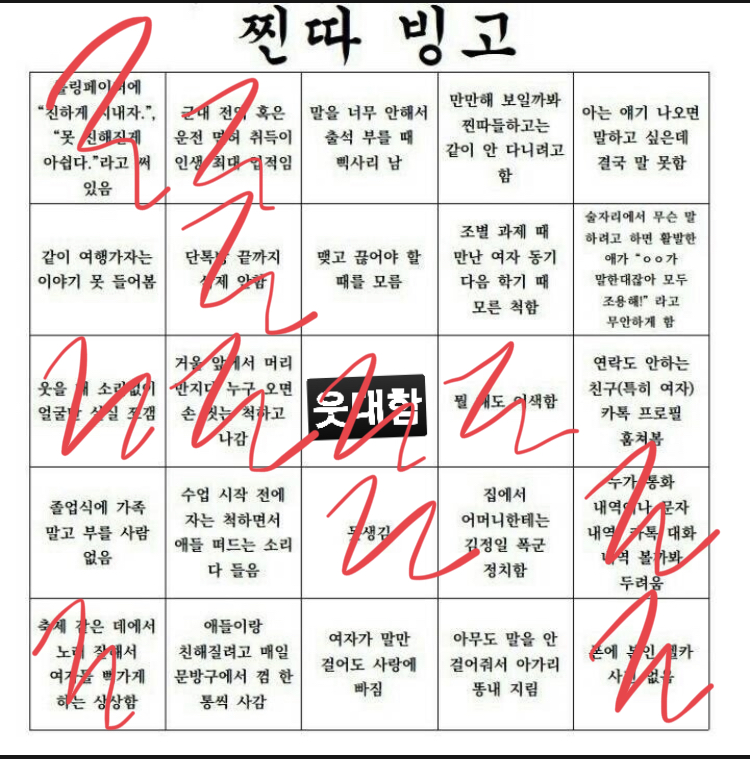 찐따 빙고
롤링페이퍼에
"친하게 지내자.",
"못 친해진게
아쉽다."라고 써
있음
군대 전역 혹은
운전 면허 취득이
인생 최대 업적임
말을 너무 안해서
출석 부를 때
삑사리 남
만만해 보일까봐
찐따들하고는
같이 안 다니려고
함
아는 얘기 나오면
말하고 싶은데
결국 말 못함
같이 여행가자는
이야기 못 들어봄
단톡방 끝까지
삭제 안함
맺고 끊어야 할
때를 모름
조별 과제 때
만난 여자 동기
다음 학기 때
모른 척함
술자리에서 무슨 말
하려고 하면 활발한
애가 "ㅇㅇ가
말한대잖아 모두
조용해!" 라고
무안하게 함
웃을 때 소리없이
얼굴만 실실 쪼갬
거울 앞에서 머리
만지다 누구 오면
손 씻는 척하고
나감
웃대함
뭘 해도 어색함
연락도 안하는
친구(특히 여자)
카톡 프로필
훔쳐봄
졸업식에 가족
말고 부를 사람
없음
수업 시작 전에
자는 척하면서
애들 떠드는 소리
다 들음
못생김
집에서
어머니한테는
김정일 폭군
정치함
누가 통화
내역이나 문자
내역 카톡 대화
내역 볼까봐
두려움
축제 같은 데에서
노래 잘해서
여자들 뻑가게
하는 상상함
애들이랑
친해질려고 매일
문방구에서 껌 한
통씩 사감
여자가 말만
걸어도 사랑에
빠짐
아무도 말을 안
걸어줘서 아가리
똥내 지림
폰에 본인 셀카
사진 없음